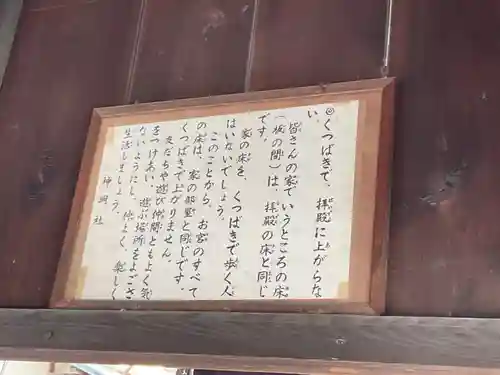 ◎くつばきで、拝殿に上がらな
い。
皆さんの家でいうところの床
（板の間）は、拝殿の床と同じ
です。
家の床を、くつばきで歩く人
はいないでしょう。
このことから、お宮のすべて
の床は、家の部屋と同じです。
くつばきで上がりません。
友だちや遊び仲間ともよく気
をつけあい、遊ぶ場所をよごさ
ないようにし、仲よく、楽しく
生活しましょう。
神明社